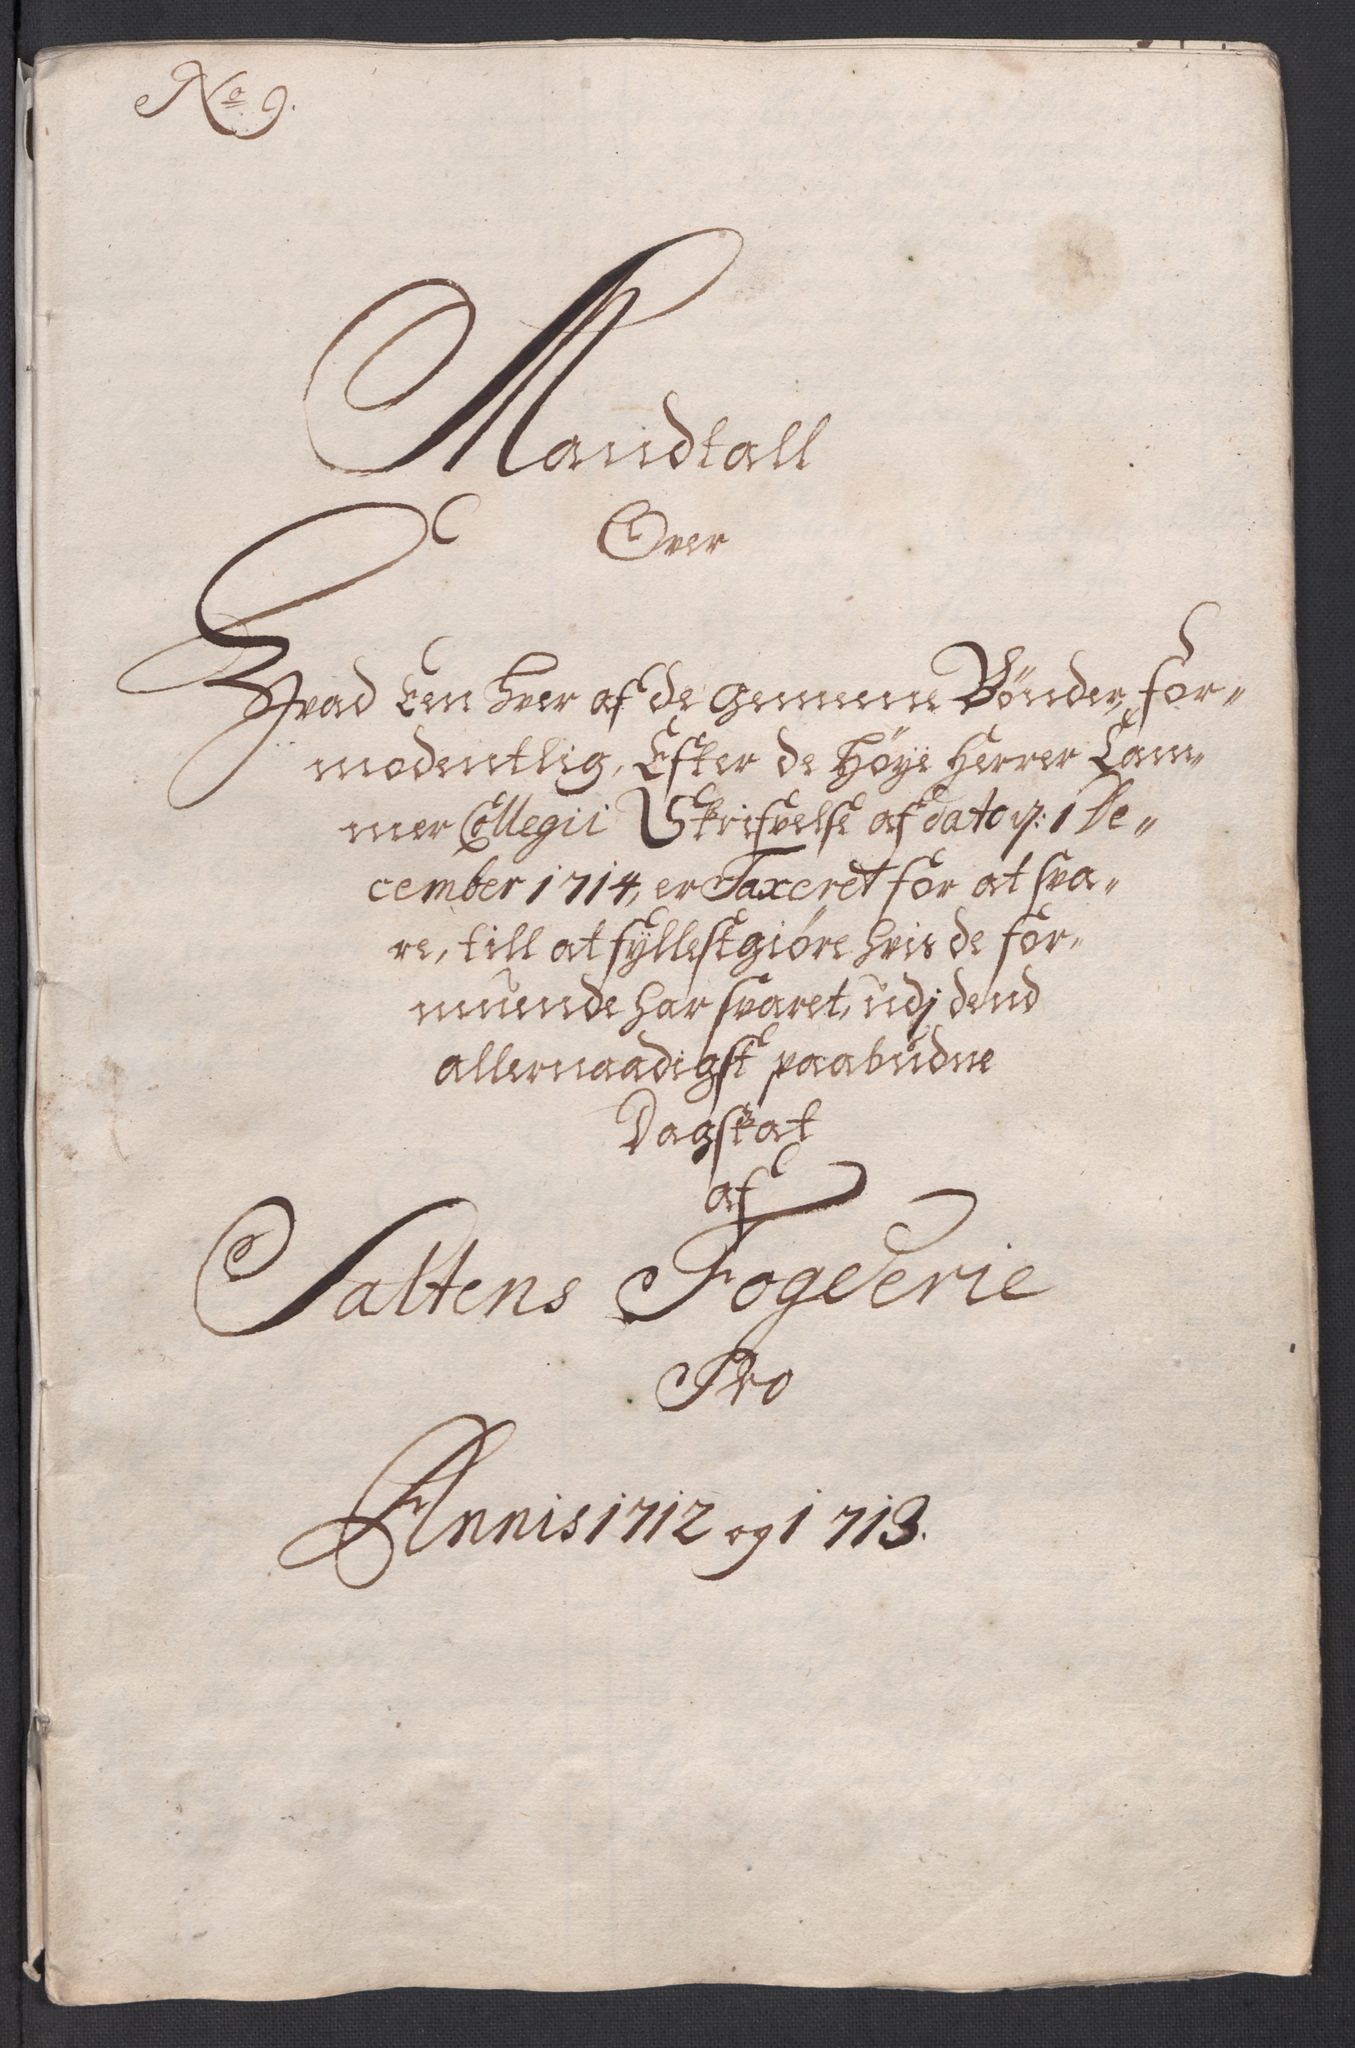 No 9.
Mandtall
Over
Hvad Een hver af de gemeene Bønder, for-
modentlig, Efter de Høye Herrer Cam-
mer Collegii Skrifvelse af dato 1 De-
cember 1714, er Taxeret for at sva-
re, till at fyllestgiøre hvis de for-
muende har svaret, udj dend
allernaadigst paabudne
Dagskat
af
Saltens Fogderie
Pro
Annis 1712 og 1713.